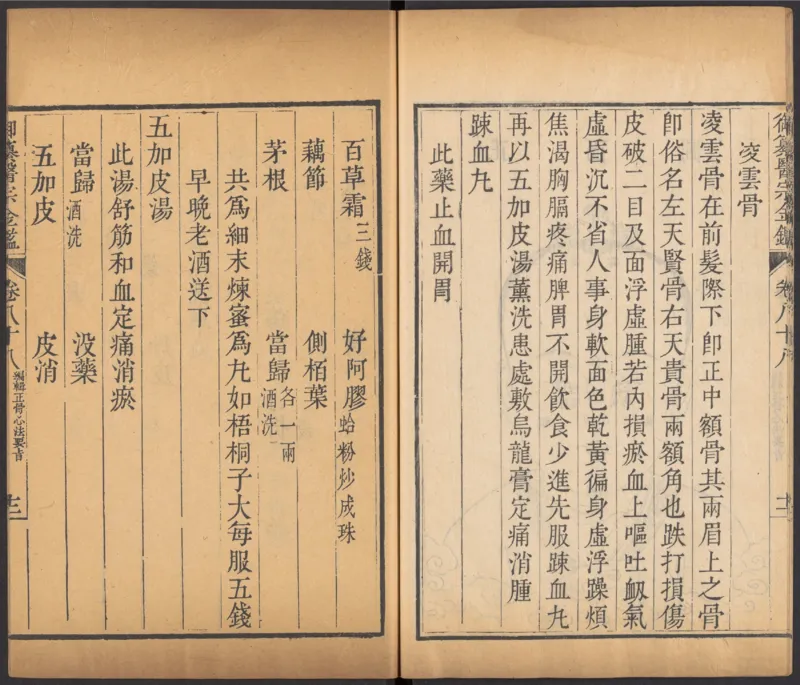 凌雲骨
凌雲骨在前髮際下卽正中額骨其兩眉上之骨
卽俗名左天賢骨右天貴骨兩額角也跌打損傷
皮破二目及面浮虛腫若內損瘀血上嘔吐衂氣
虛昏沉不省人事身軟面色乾黃徧身虛浮躁煩
焦渴胸膈疼痛脾胃不開飮食少進先服疎血丸
再以五加皮湯薰洗患處敷烏龍膏定痛消腫
疎血丸
此藥止血開胃
百草霜三錢 好阿膠蛤粉炒成珠
藕節 側栢葉
茅根 當歸各一兩酒洗
共爲細末煉蜜爲丸如梧桐子大每服五錢
早晩老酒送下
五加皮湯
此湯舒筋和血定痛消瘀
當歸酒洗 沒藥
五加皮 皮消
御纂醫宗金鑑 卷八十八 編輯正骨心法要旨 十二